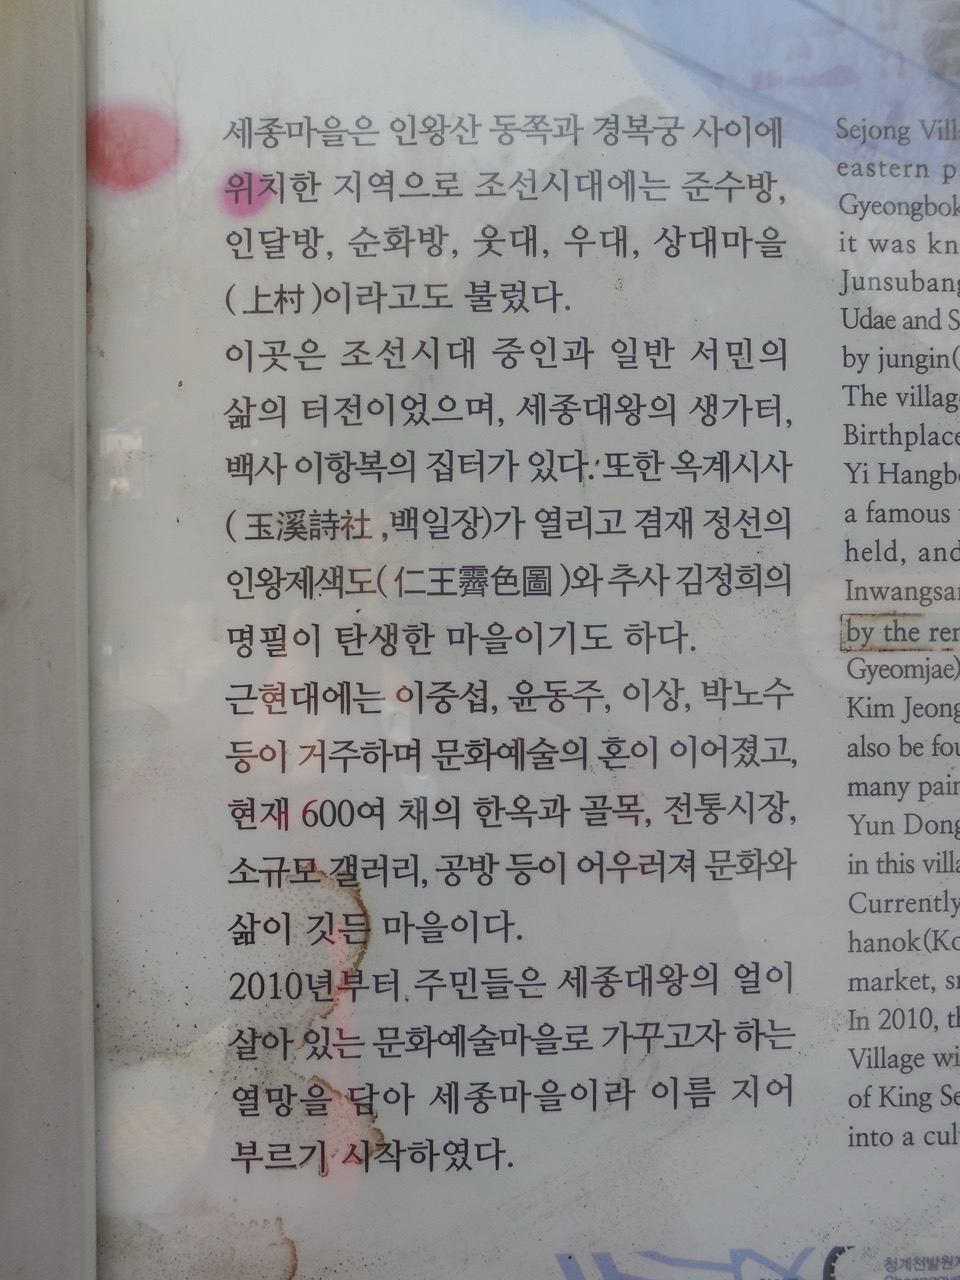 세종마을은 인왕산 동쪽과 경복궁 사이에
위치한 지역으로 조선시대에는 준수방,
인달방, 순화방, 웃대, 우대, 상대마을
(上村)이라고도 불렀다.
이곳은 조선시대 중인과 일반 서민의
삶의 터전이었으며, 세종대왕의 생가터,
백사 이항복의 집터가 있다. 또한 옥계시사
(玉溪詩社,백일장)가 열리고 겸재 정선의
인왕제색도(仁王霽色圖)와 추사 김정희의
명필이 탄생한 마을이기도 하다.
근현대에는 이중섭, 윤동주, 이상, 박노수
등이 거주하며 문화예술의 혼이 이어졌고,
현재 600여 채의 한옥과 골목, 전통시장,
소규모 갤러리, 공방 등이 어우러져 문화와
삶이 깃든 마을이다.
2010년부터 주민들은 세종대왕의 얼이
살아 있는 문화예술마을로 가꾸고자 하는
열망을 담아 세종마을이라 이름 지어
부르기 시작하였다.
Sejong
eastern
it was
Udae and
by jungin(
The
Birthplace
Yi
a famous
held,
by the
Gyeomjae)
Kim
also be
many
Yun
in this
market,
In 2010,
Village
of King
into a
청계천발원지